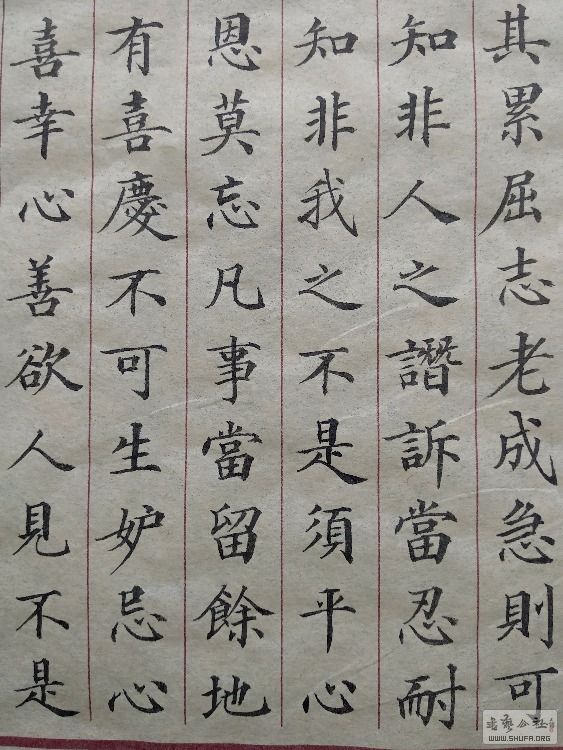 其累屈志老成急則可
知非人之譖訴當忍耐
知非我之不是須平心
恩莫忘凡事當留餘地
有喜慶不可生妒忌心
喜幸心善欲人見不是
WWW.SHUFA.ORG